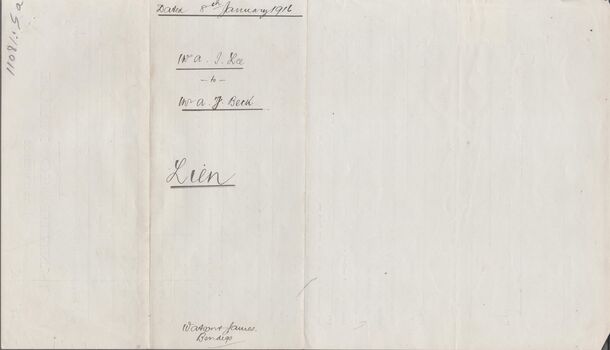 Dated 8th January 1916
Mr A. J. Lee
- to -
Mr A J Beck
Lien
Watson & James
Bendigo
11081.5a